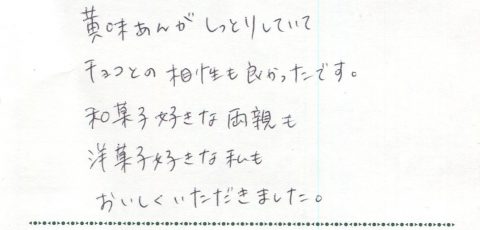 黄味あんがしっとりしていて
チョコとの相性も良かったです。
和菓子好きな両親も
洋菓子好きな私も
おいしくいただきました。